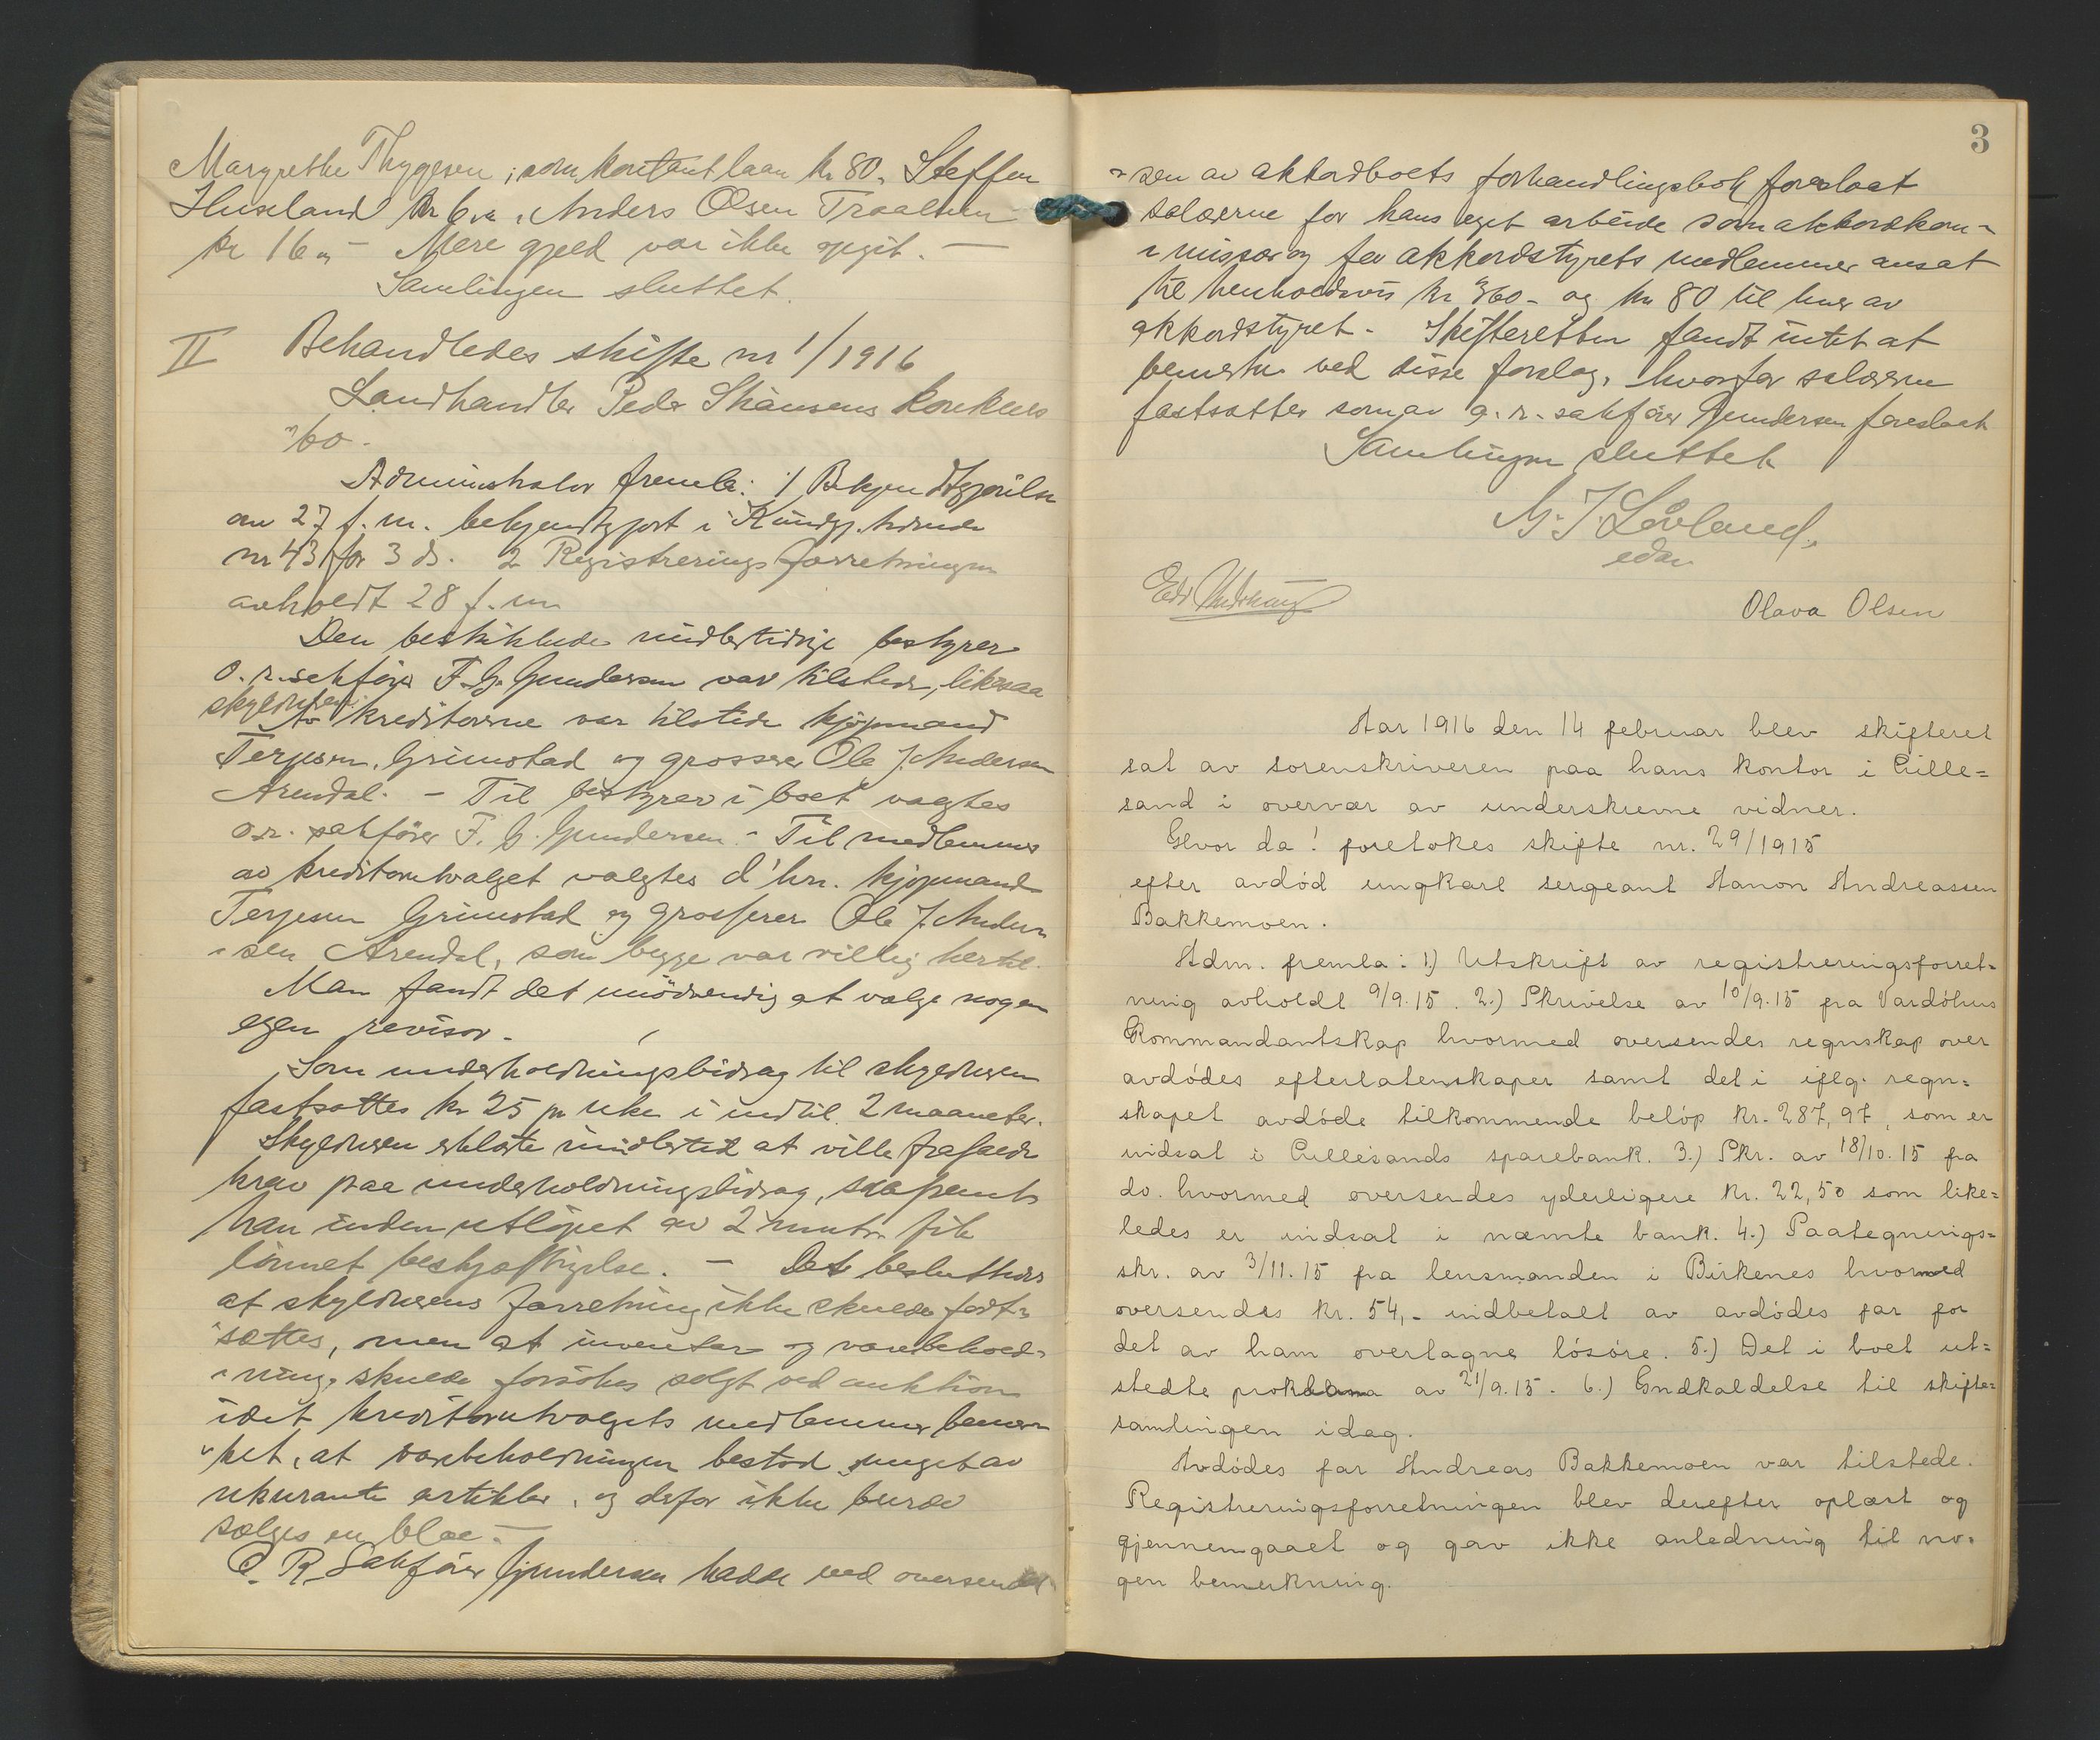 Margrethe Thygesen, som kontant laan kr 80, Steffen
Huseland kr 6, Anders Olsen Traalum
kr 16,- Mere gjeld var ikke opgit. -
Samlingen sluttet.
II Behandledes skifte nr 1/1916
Landhandler Peder Skånsens konkurs
=bo.
Administrator fremla: 1/ Bekjendtgjørelse
av 27 f.m. bekjendtgjort i Kundgj. tidende
nr 43 for 3 ds. 2 Registreringsforretningen
avholdt 28 f.m
Den beskikkede midlertidige bestyrer
o.r.sakfører F. G. Gundersen var tilstede, likesaa
skyldneren.
Av kreditorerne var tilstede kjøpmand
Terjesen, Grimstad og grosserer Ole J. Andersen
Arendal. - Til bestyrer i boet valgtes
o.r. sakfører F. G. Gundersen. - Til medlemmer
av kreditorutvalget valgtes d'hrr. kjøpmand
Terjesen Grimstad og grosserer Ole J. Ander=
=sen Arendal, som begge var villig hertil.
Man fandt det unødvendig at vælge nogen
egen revisor.
Som underholdningsbidrag til skyldneren
fastsattes kr 25 pr uke i indtil 2 maaneder.
Skyldneren erklærte imidlertid at ville frafalde
krav paa underholdningsbidrag, saafremt
han inden utløpet av 2 mndr. fik
lønnet beskjæftigelse. - Det besluttedes
at skyldnerens forretning ikke skulde fort=
=sættes, men at inventar og varebehold=
=ning skulde forsøkes solgt ved auktion
idet kreditorutvalgets medlemmer bemer=
=ket, at varebeholdningen bestod meget av
ukurante artikler, og derfor ikke burde
sælges en bloc. -
O.R. Sakfører Gundersen hadde ved oversendel
3
=sen av akkordboets forhandlingsbok foreslaat
salærerne for hans eget arbeide som akkordkom=
=missær og for akkordstyrets medlemmer ansat
til henholdsvis kr 360- og kr 80 til hver av
akkordstyret. Skifteretten fandt intet at
bemerke ved disse forslag, hvorfor salærerne
fastsattes som av o.r.sakfører Gundersen foreslaat
Samlingen sluttet
G. J. Løvland
edsv.
Olava Olsen
Aar 1916 den 14 februar blev skifteret
sat av sorenskriveren paa hans kontor i Lille=
sand i overvær av underskrevne vidner.
Hvor da! foretokes skifte nr. 29/1915
efter avdød ungkarl sergeant Aanon Andreassen
Bakkemoen.
Adm. fremla: 1) Utskrift av registreringsforret=
ning avholdt 9/9.15. 2.) Skrivelse av 10/9.15 fra Vardøhus
Kommandantskap hvormed oversendes regnskap over
avdødes efterlatenskaper samt det i iflg. regn=
skapet avdøde tilkommende beløp kr. 287,97, som er
indsat i Lillesands sparebank. 3.) Skr. av 18/10.15 fra
do. hvormed oversendes yderligere kr. 22,50 som like=
ledes er indsat i nævnte bank. 4.) Paategnings=
skr. av 3/11.15 fra lensmanden i Birkenes hvormed
oversendes kr. 54,- indbetalt av avdødes far for
det av ham overtagne løsøre. 5.) Det i boet ut=
stedte proklama av 21/9.15. 6.) Indkaldelse til skifte=
samlingen idag.
Avdødes far Andreas Bakkemoen var tilstede.
Registreringsforretningen blev derefter oplæst og
gjennemgaaet og gav ikke anledning til no=
gen bemerkning.